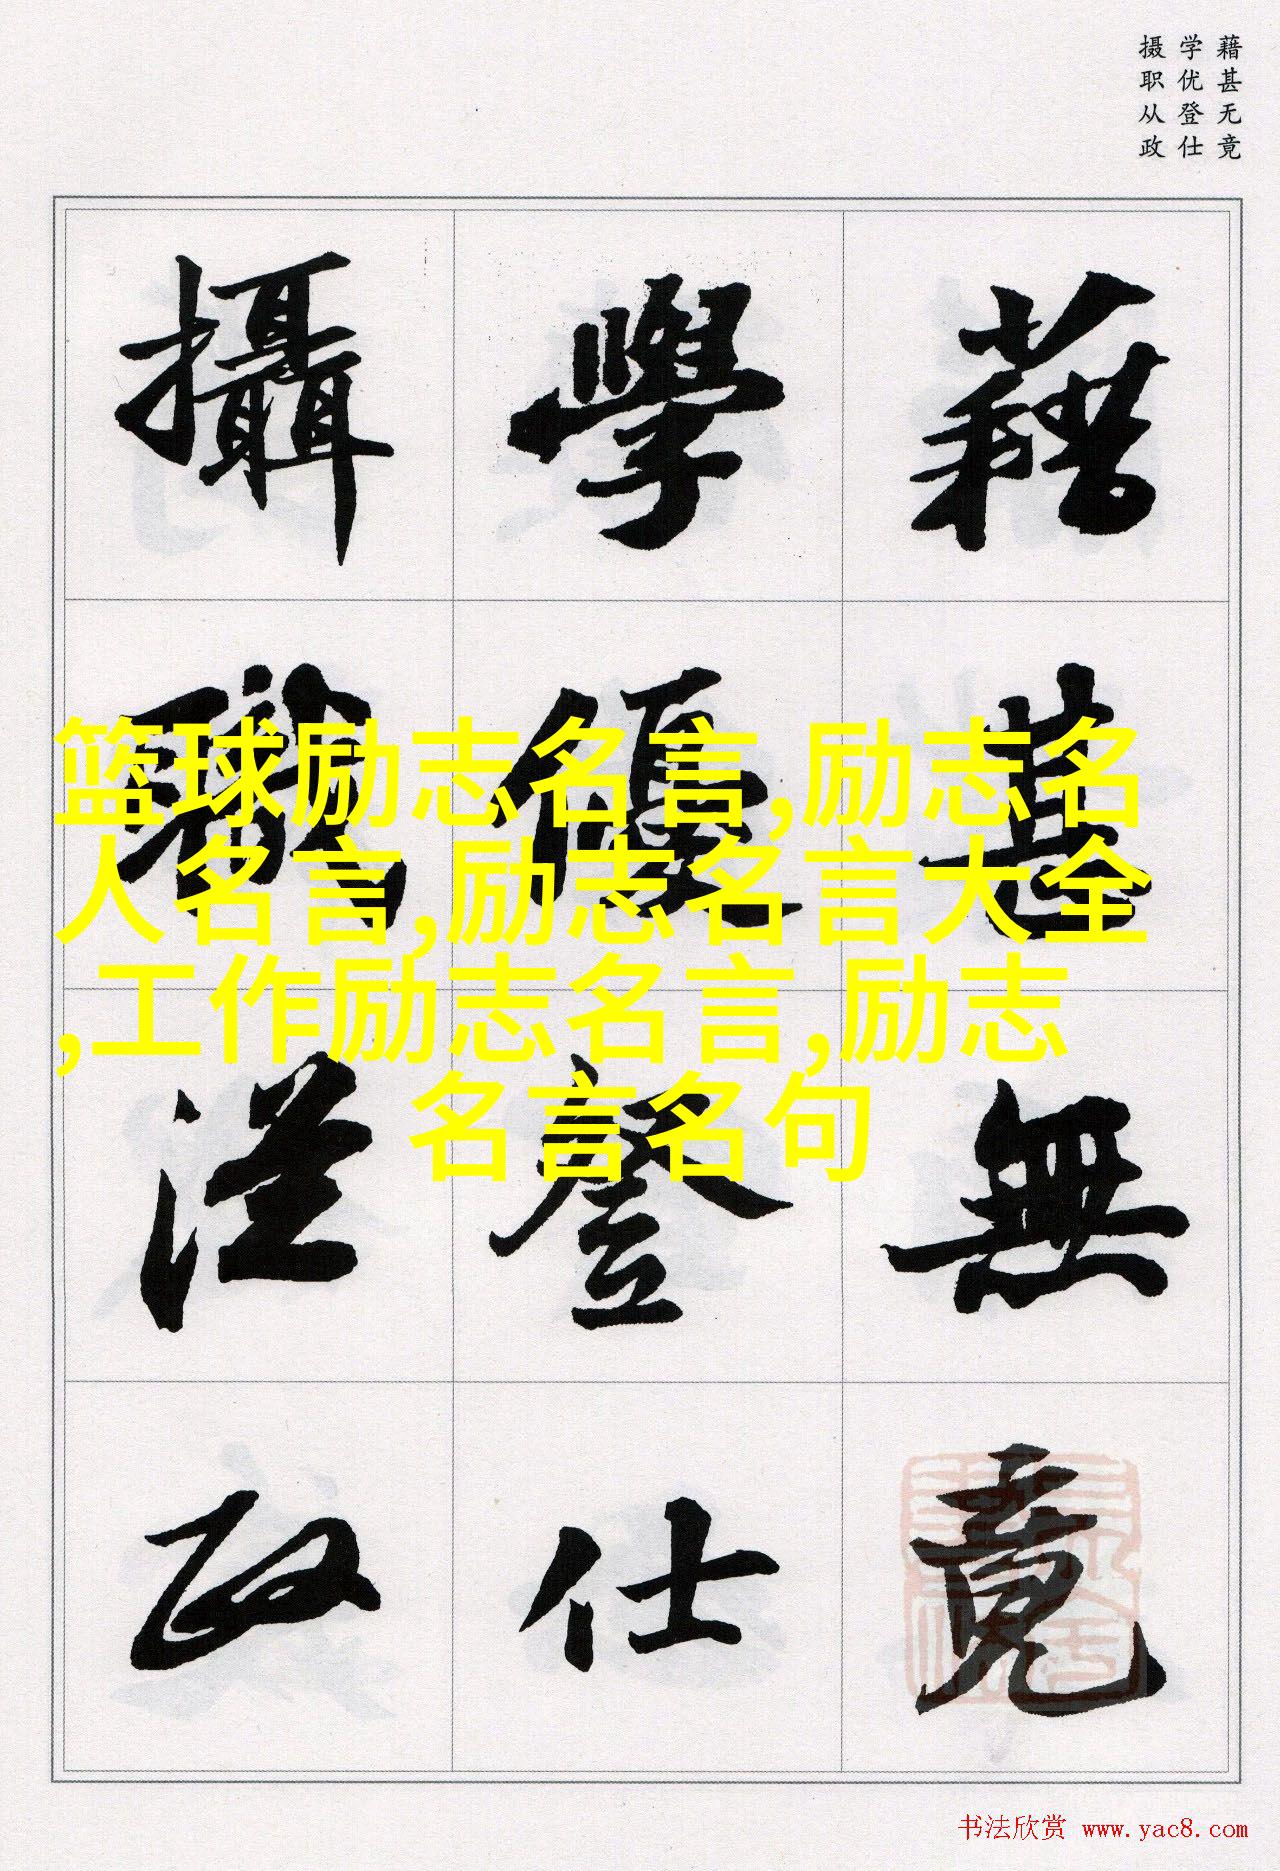 藉甚无竟
学优登仕
摄职从政
藉甚無竟
學優登仕
攝職從政
篮球励志名言,励志名
人名言,励志名言大全
,工作励志名言,励志
名言名句
书法欣赏 www.yac8.com